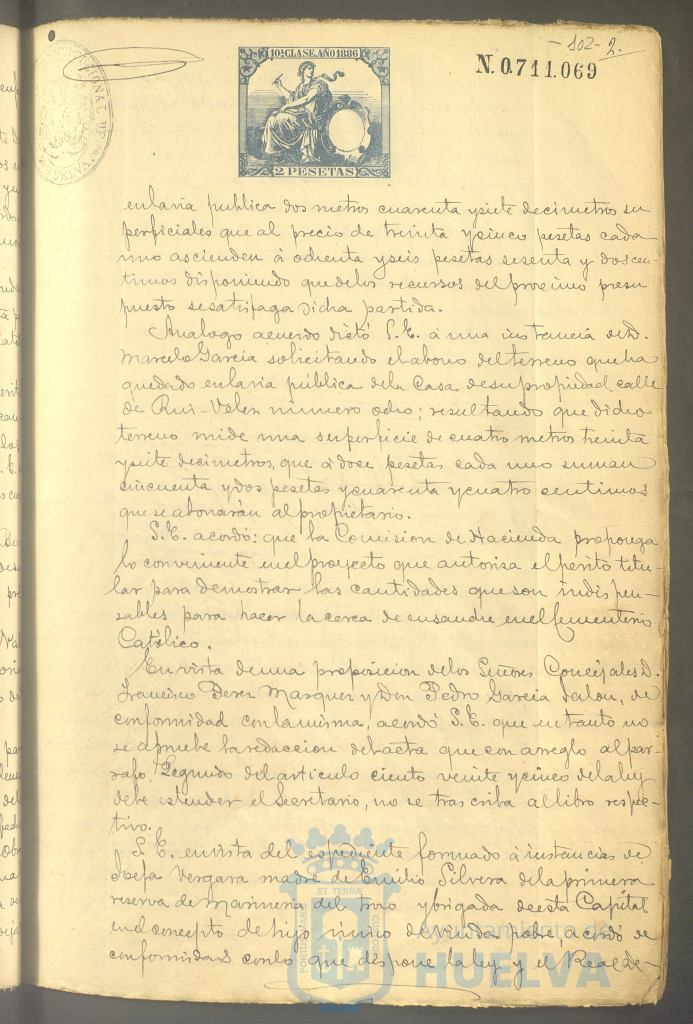 - 102 - 2.
10ª CLASE. AÑO 1886
N. 0.711.069
2 PESETAS
en la via publica dos metros cuarenta y siete decimetros su
perficiales que al precio de treinta y cinco pesetas cada
uno ascienden á ochenta y seis pesetas sesenta y dos cen
timos disponiendo que de los recursos del procsimo presu
puesto se satisfaga dicha partida.
Analogo acuerdo dictó S.E. á una instancia de D.
Marcelo Garcia solicitando el abono del terreno que ha
quedado en la via pública de la Casa de su propiedad calle
de Rui-Velez número ocho; resultando que dicho
terreno mide una superficie de cuatro metros treinta
y siete decimetros, que á doce pesetas cada uno suman
cincuenta y dos pesetas y cuarenta y cuatro centimos
que se abonarán al propietario.
S.E. acordó: que la Comision de Hacienda proponga
lo conveniente en el proyecto que autorisa el perito titu
lar para demostrar las cantidades que son indispen
sables para hacer la cerca de ensanche en el Cementerio
Católico.
En vista de una proposicion de los Señores Concejales D.
Francisco Perez Marquez y Don Pedro Garcia Jalon, de
conformidad con la misma, acordó S.E. que en tanto no
se apruebe la redaccion del acta que con arreglo al par
rafo Segundo del articulo ciento veinte y cinco de la ley
debe estender el Secretario, no se trascriba al libro respec
tivo.
S.E. en vista del espediente formado á instancias de
Josefa Vergara madre de Emilio Silvera de la primera
reserva de Marineria del trozo y brigada de esta Capital
en el concepto de hijo unico de viuda pobre, acordó de
conformidad con lo que dispone la ley y el Real de-
PORTUS MARIS ET TERRÆ CUSTODIA
Ayuntamiento de
HUELVA